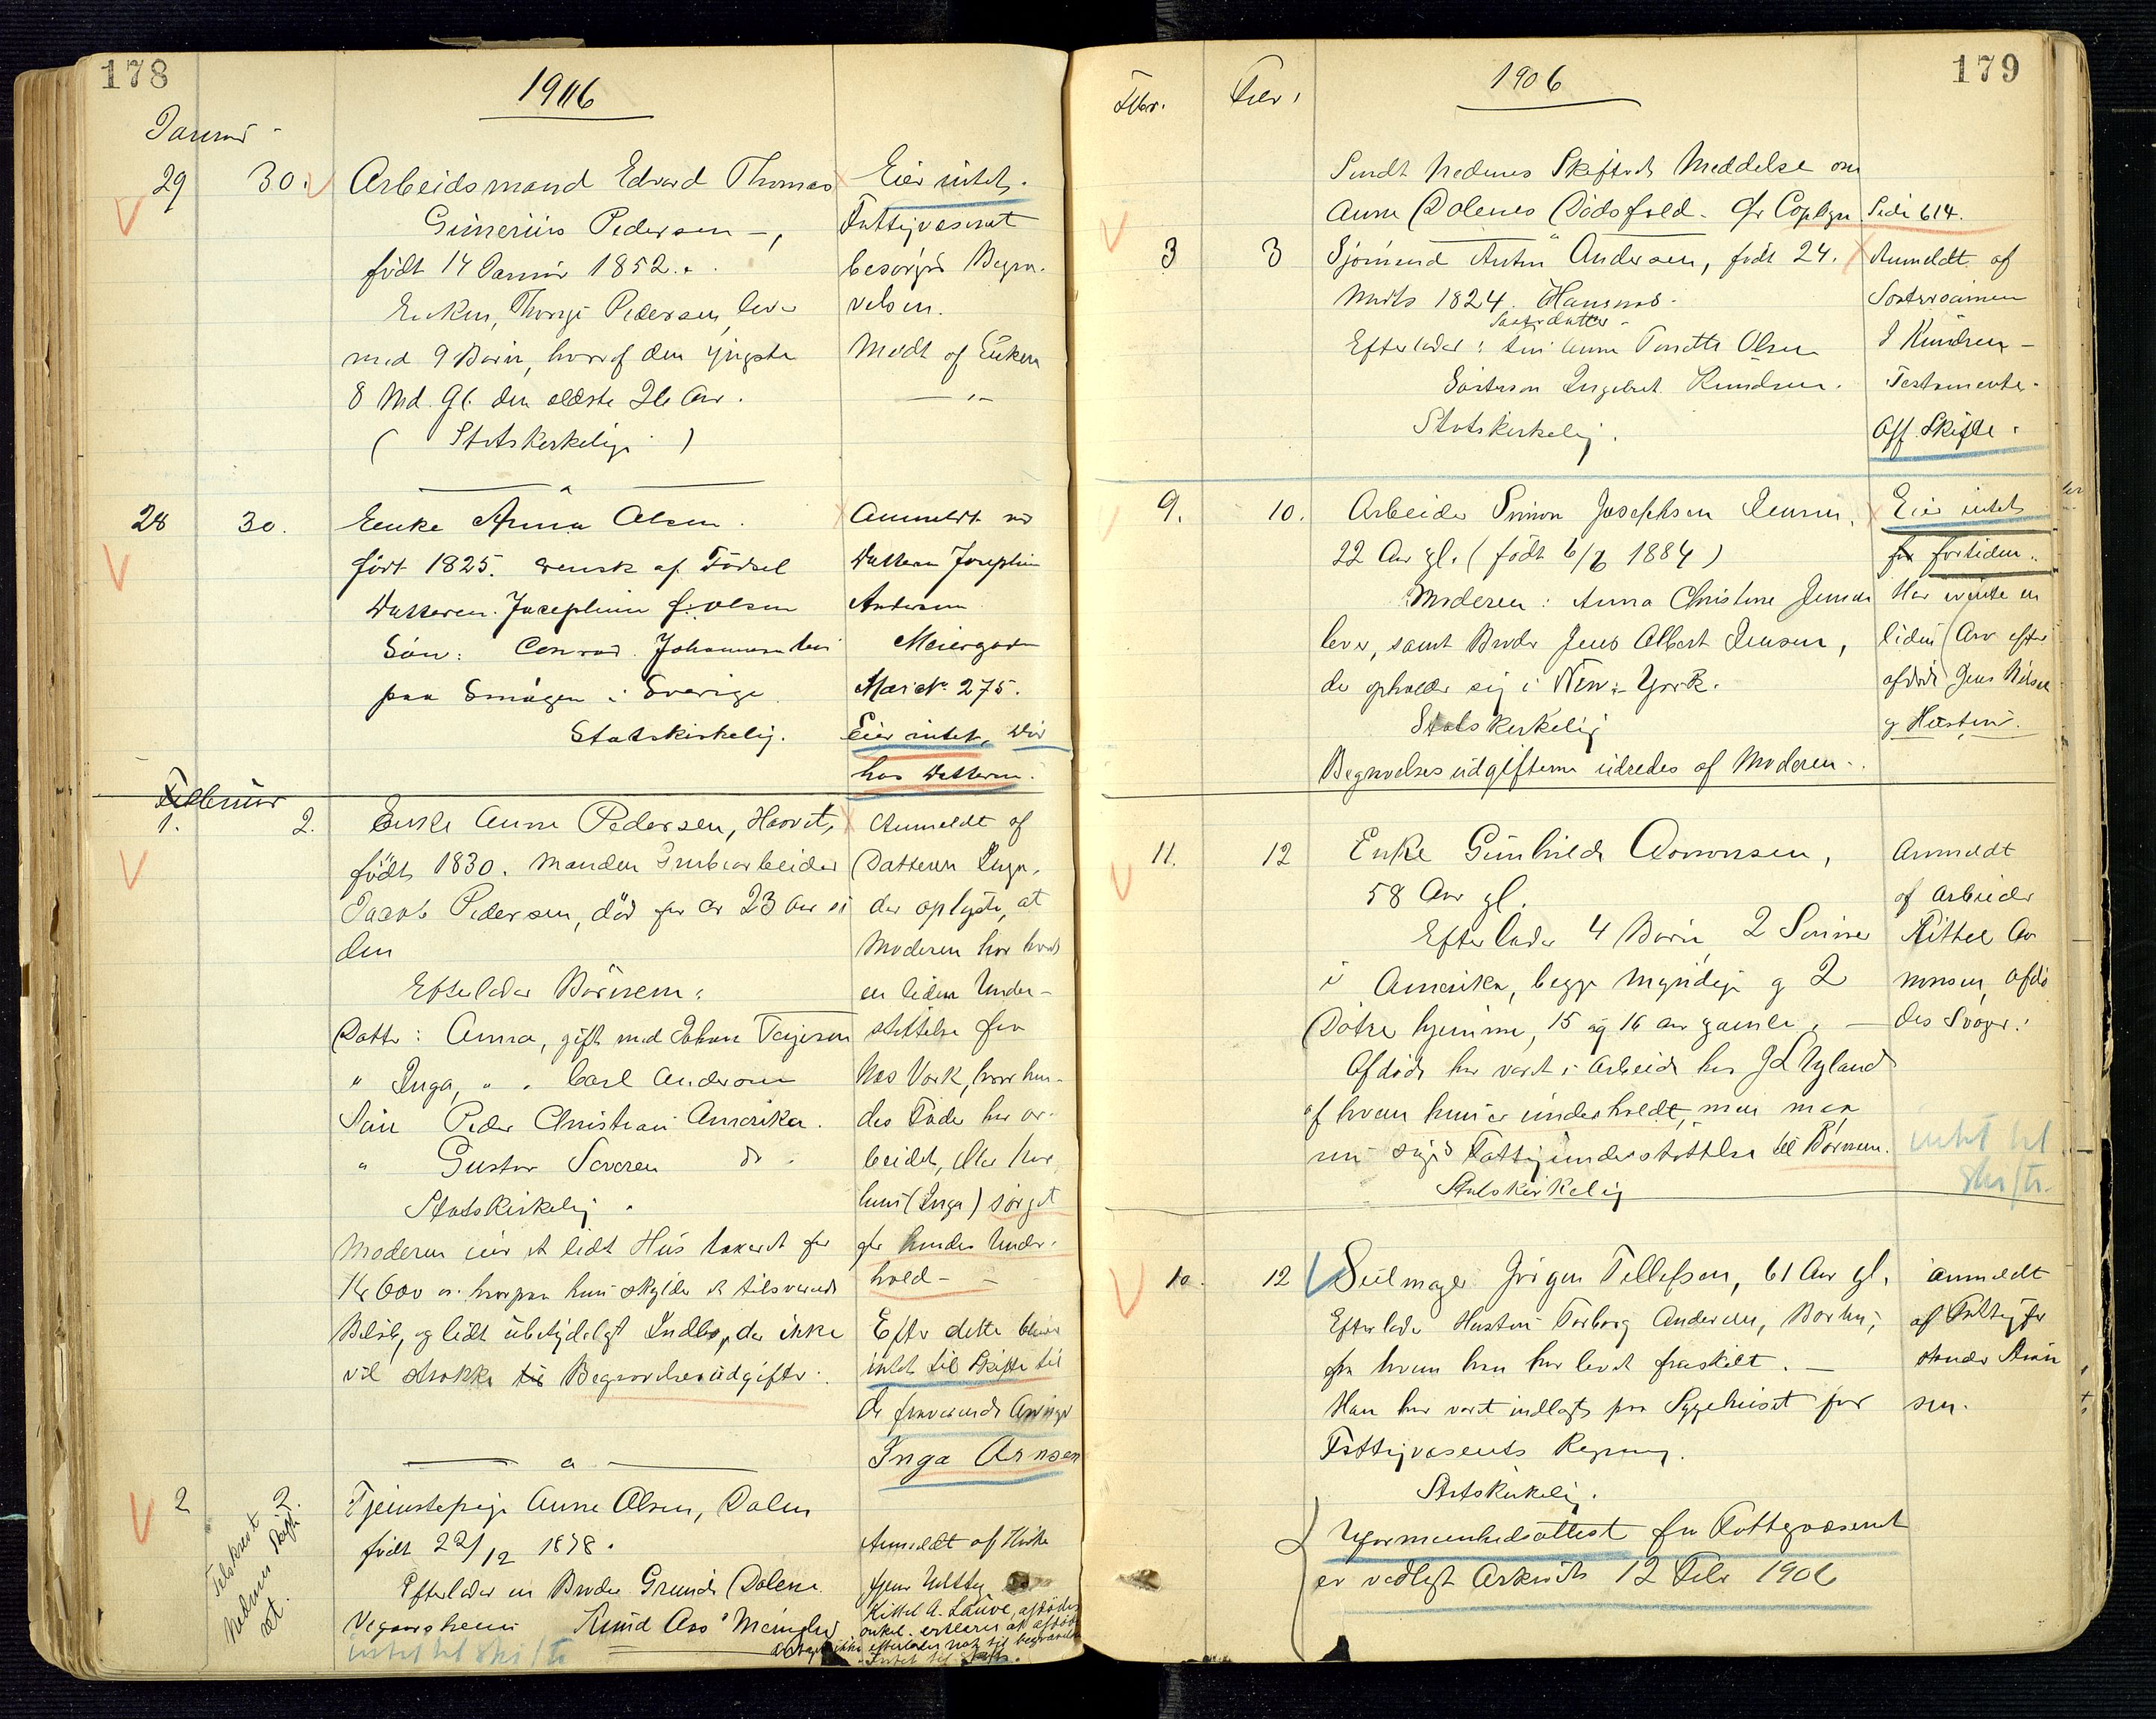 178
1906
Januar
29 30. Arbeidsmand Edvard Thomas
Gunerius Pedersen –,
født 14 Januar 1852.
Enken, Pedersen, lever
med 9 Børn, hvoraf den yngste
8 Md. Gl. den ældste 26 Aar.
(Statskirkelig)
Eier intet.
Fattigvæsenet
besørger Begra-
velsen.
Meldt af Enken
28 30. Enke Anna Olsen.
født 1825. svensk af Fødsel
Datteren Josephine f. Olsen
Søn: Conrad Johannesen
paa Smögen i Sverige
Statskirkelig.
Anmeldt ved
Datteren Josephine
Andersen
Meiergaden
Matr. Nr. 275.
Eier intet, bor
hos Datteren.
Februar
1. 2. Enke Anne Pedersen, Haavet,
født 1830. Manden Grubearbeider
Jacob Pedersen, død for ca 23 Aar si
den
Efterlader Børnene:
Datter: Anna, gift med Johan Terjesen
" Inga, " " Carl Andersen
Søn Peder Christian Amerika.
" Gustav Severin do.
Statskirkelig.
Moderen eier et lidt Hus taxeret for
Kr 600 og hvorpaa hun skylder et tilsvarende
Beløb, og lidt ubetydeligt Indbo, der ikke
vil strække til Begravelsesudgifter.
Anmeldt af
Datteren Inga,
der oplyste, at
Moderen har havt
en liden Under-
støttelse fra
Næs Værk, hvor hen-
des Fader har ar-
beidet, eller har
hun (Inga) sørget
for hendes Under-
hold –
Efter dette bliver
intet til Skifte til
de fraværende Arvinger
Inga Arnsen
2 2. Tjenestepige Anne Olsen, Dalen
født 22/12 1878.
Efterlader en Broder Dalene
Vegaarsheien Knud Aas
intet til skifte
Tilskrevet
Nedenes Skifte
ret.
Anmeldt af
Kittel A. Lauve, afdødes
onkel. erklærer at afdøde
ikke efterlader nok til begravelse
Intet til Skifte.
179
Febr. Febr. 1906
Sendt Nedenes Skifteret Meddelse om
Anne Dalenes Dødsfald. fr Copibgn Side 614.
3 3 Sjømand Anton Andersen, født 24.
Marts 1824. Hansnes.
Søsterdatter
Efterlader: Anne Tonette Olsen
Søstersøn Ingebret Knudsen.
Statskirkelig.
Anmeldt af
Søstersønnen
I Knudsen –
Testamente.
Off. Skifte.
9. 10. Arbeider Simon Josephsen Jensen,
22 Aar gl. (født 6/6 1884)
Moderen: Anna Christine Jensen
lever, samt Broder Jens Albert Jensen,
de opholder sig i New-York.
Statskirkelig
Begravelsesudgifterne udredes af Moderen.
Eier intet
for fortiden.
Har ivente en
liden Arv efter
afdøde Jens Nilsen
og Hustru.
11. 12 Enke Gunhild Aamonsen,
58 Aar gl.
Efterlader 4 Børn, 2 Sønner
i Amerika, begge myndige og 2
Døtre hjemme, 15 og 16 Aar gamle. –
Afdøde har været i Arbeide hos J L Ugland
af hvem hun er underholdt, men man
nu søge Fattigunderstøttelse til Børnene.
Statskirkelig
Anmeldt
af Arbeider
Kittel Aa
monsen, afdø
des Svoger.
intet til
skifte.
10. 12 Seilmager Jørgen Tellefsen, 61 Aar gl.
Efterlader Hustru Torborg Andersen,
fra hvem han har levet fraskilt. –
Han har været indlagt paa Sygehuset for
Fattigvæsenets Regning.
Statskirkelig.
Uformuenhedsattest fra Fattigvæsenet
er vedlagt Arkivets 12 Febr 1906
anmeldt
af Fattigfor
stander
sen.